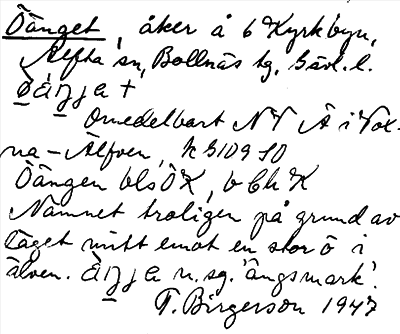 Öänget, åker å 6 Kyrkbyn,
Alfta sn, Bollnäs tg, Gävl. l.
Omedelbart NV Å i Vox-
na-Älfven, k G109 SO
Öängen bls ÖK, v Ch K
Namnet troligen på grund av
läget mitt emot en stor ö i
älven. n. sg. 'ängsmark'.
T. Birgerson 1947